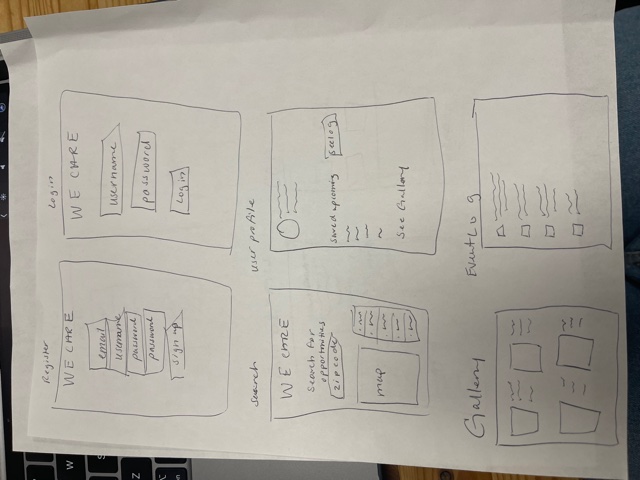 Register
WE CARE
email
username
password
password
sign up
Login
WE CARE
username
password
Login
Search
WE CARE
Search for
opportunities
zipcode
map
user profile
Saved upcoming
see log
See Gallery
Gallery
Event Log